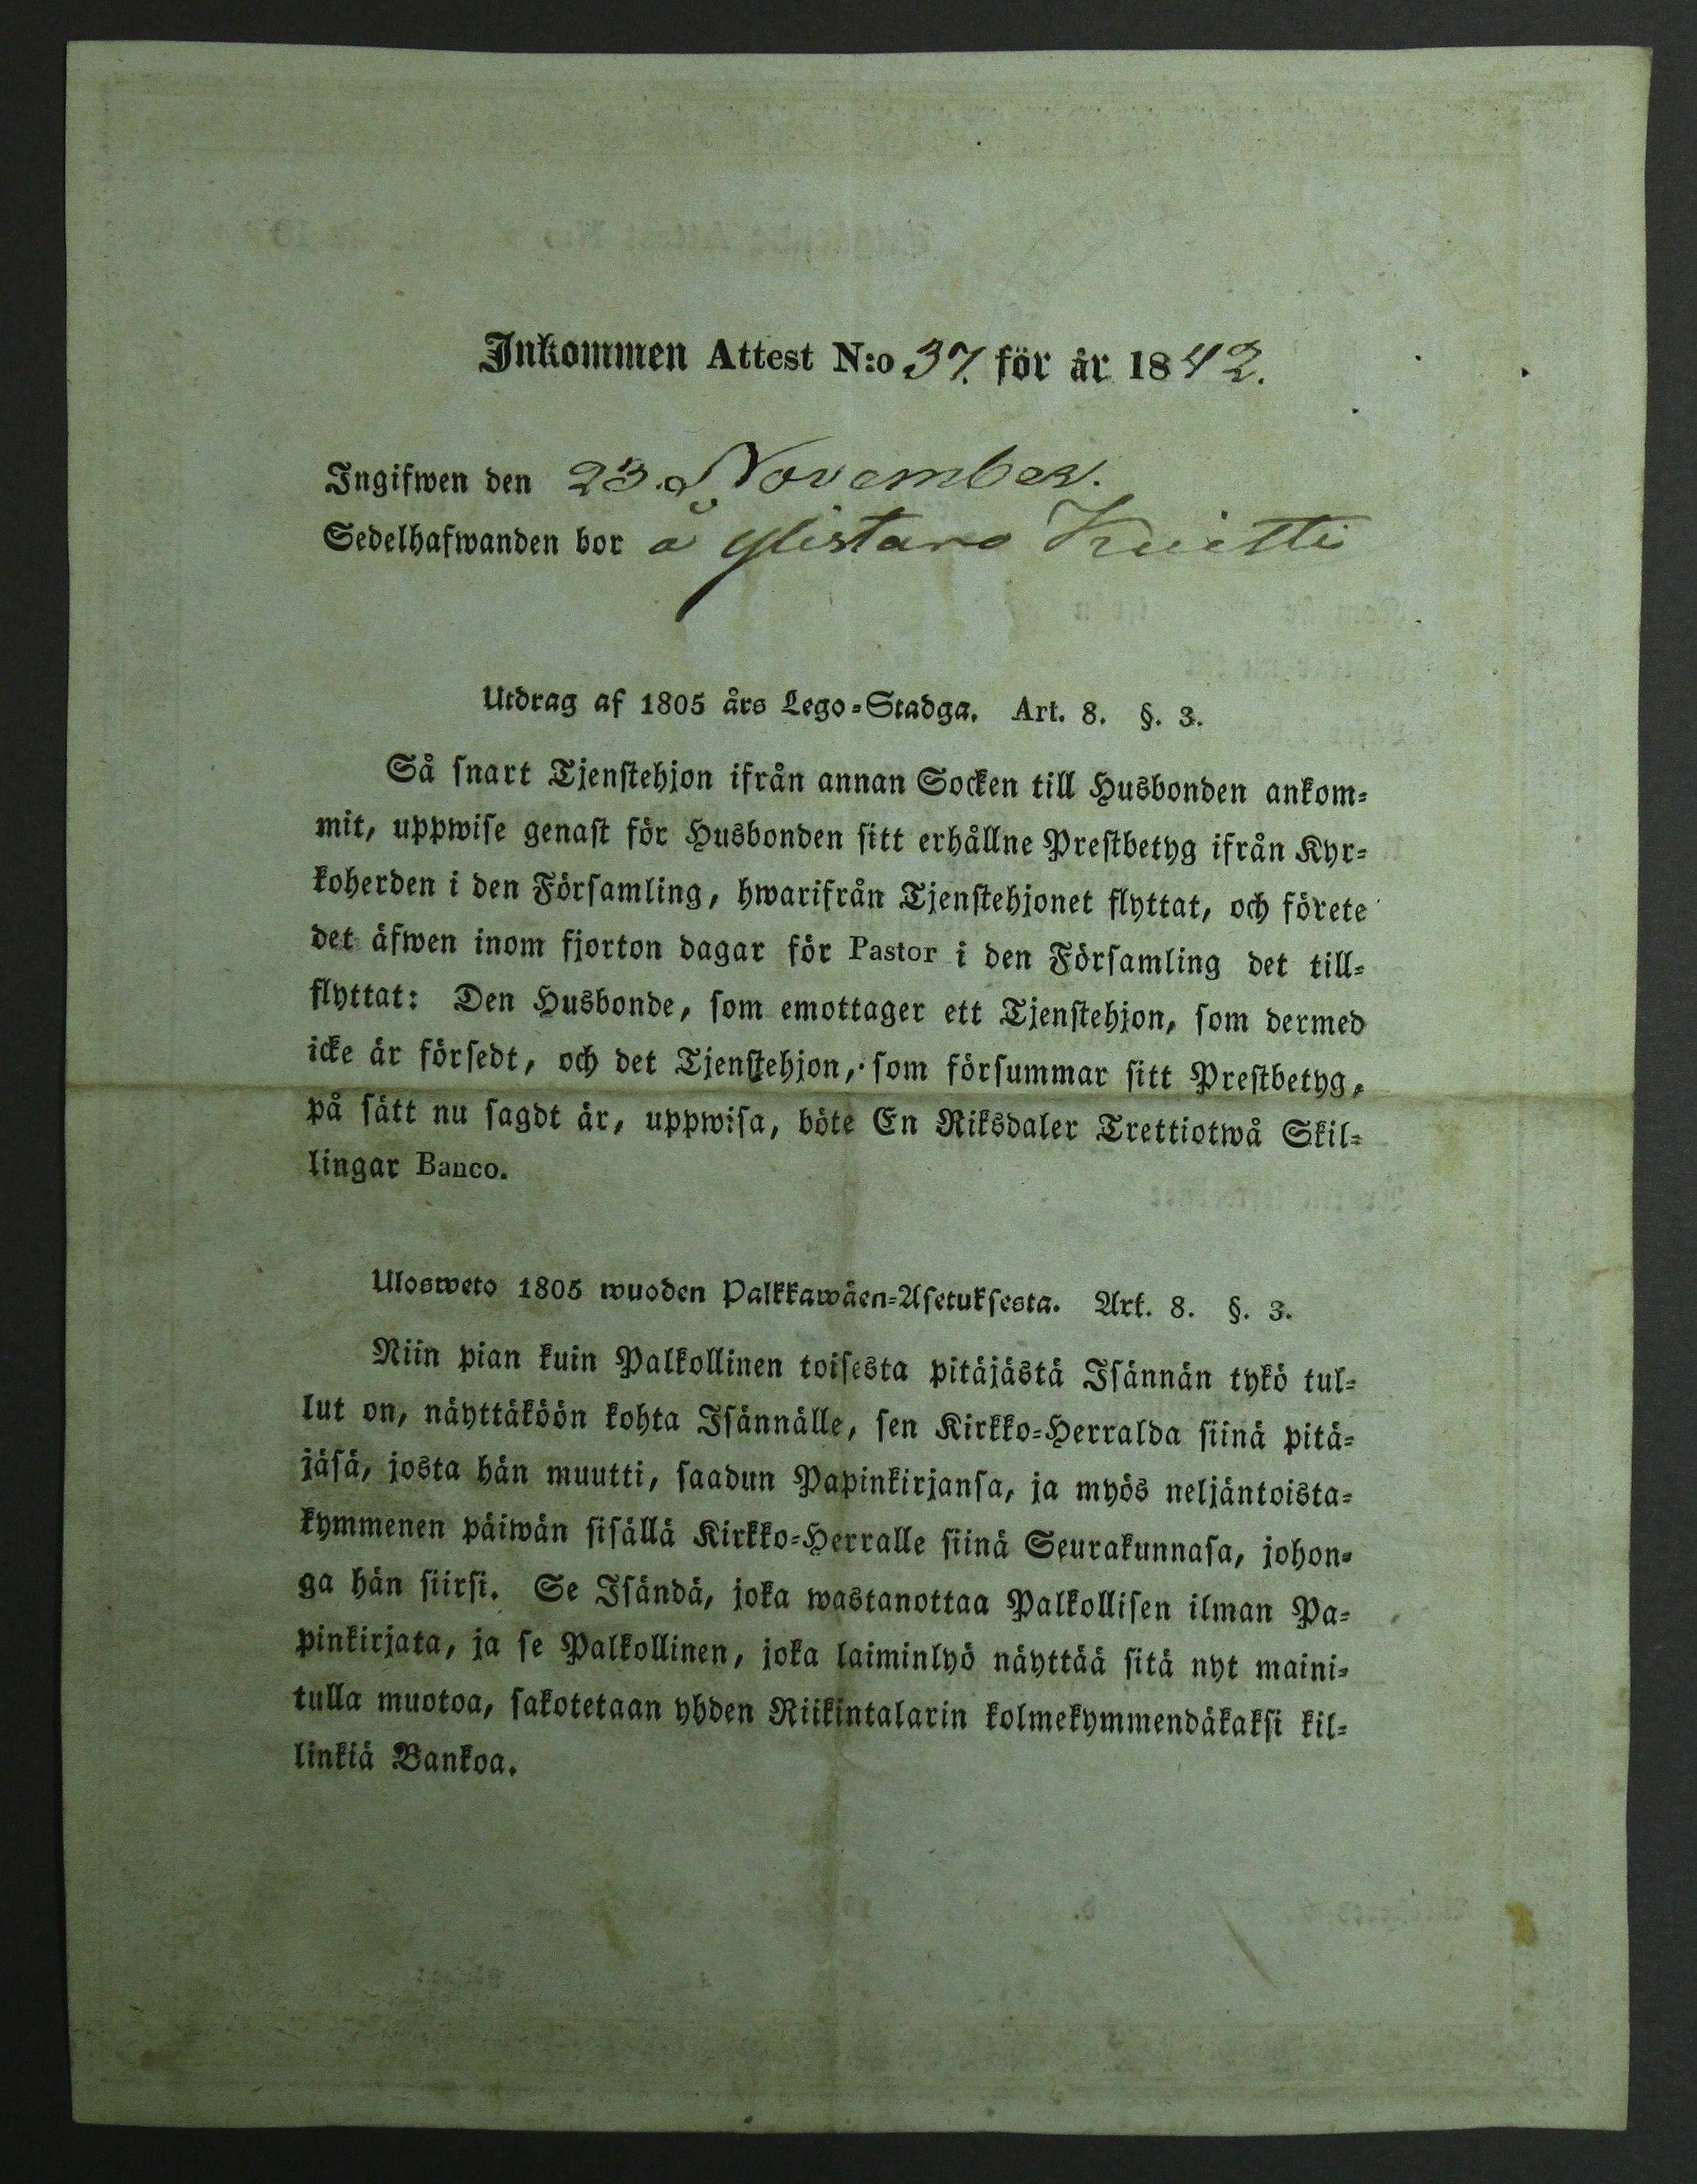 Inkommen Attest N:o 37. för år 1842.
Ingifwen den 23. November.
Sedelhafwanden bor å Ylistaro Knietti
Utdrag af 1805 års Lego-Stadga. Art. 8. §. 3.
Så snart Tjenstehjon ifrån annan Socken till Husbonden ankom-
mit, uppwise genast för Husbonden sitt erhållne Prestbetyg ifrån Kyr-
koherden i den Församling, hwarifrån Tjenstehjonet flyttat, och förete
det äfwen inom fjorton dagar för Pastor i den Församling det till-
flyttat: Den Husbonde, som emottager ett Tjenstehjon, som dermed
icke är försedt, och det Tjenstehjon, som försummar sitt Prestbetyg,
på sätt nu sagdt är, uppwisa, böte En Riksdaler Trettiotwå Skil-
lingar Banco.
Ulosweto 1805 wuoden Palkkawäen-Asetuksesta. Art. 8. §. 3.
Niin pian kuin Palkollinen toisesta pitäjästä Isännän tykö tul-
lut on, näyttäköön kohta Isännälle, sen Kirkko-Herralda siinä pitä-
jäsä, josta hän muutti, saadun Papinkirjansa, ja myös neljäntoista-
kymmenen päiwän sisällä Kirkko-Herralle siinä Seurakunnasa, johon-
ga hän siirsi. Se Isändä, joka wastanottaa Palkollisen ilman Pa-
pinkirjata, ja se Palkollinen, joka laiminlyö näyttää sitä nyt maini-
tulla muotoa, sakotetaan yhden Riikintalarin kolmekymmendäkaksi kil-
linkiä Bankoa.